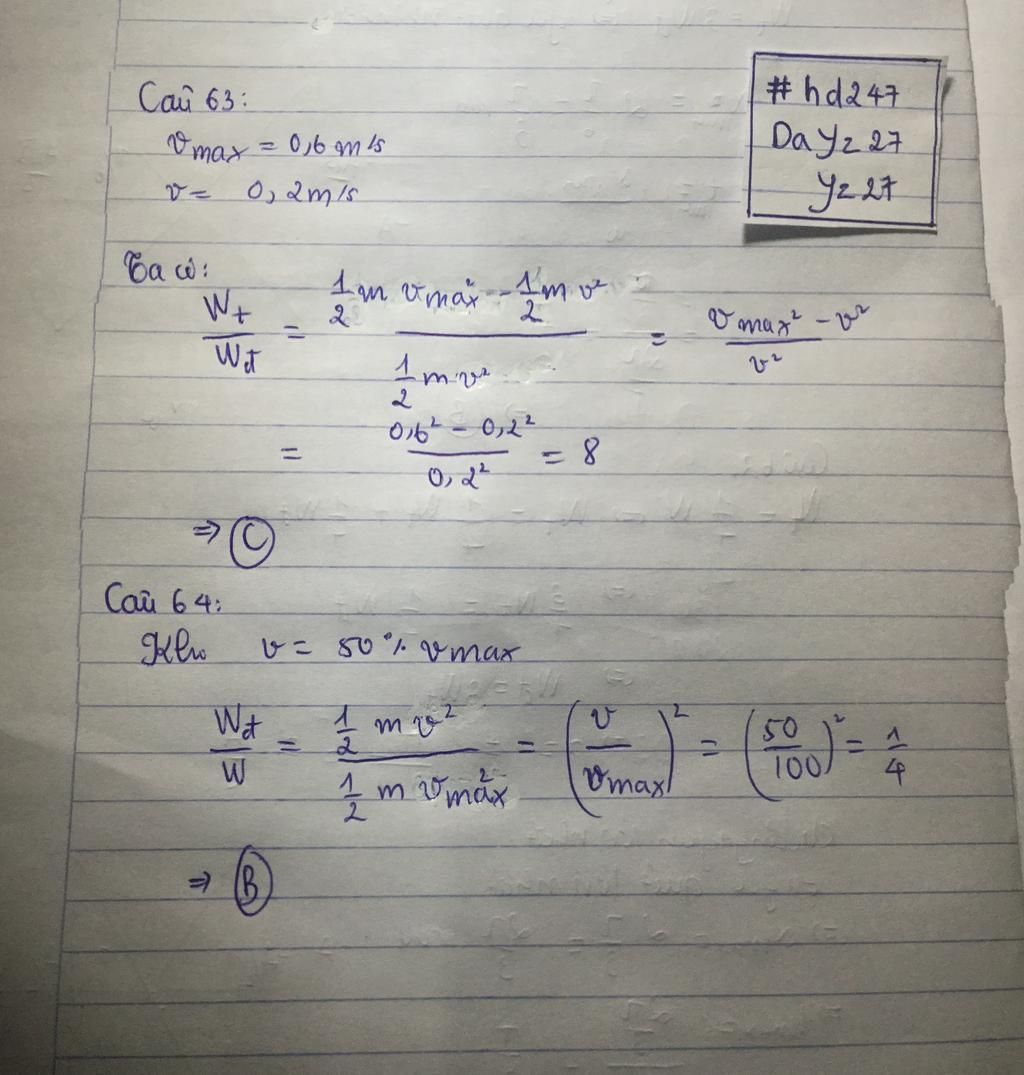 Câu 63:
v max = 0,6 m/s
v = 0,2 m/s
#hd247
DaYz27
Yz27
Ta có:
Wt/Wđ = (1/2 m v max² - 1/2 m v²)/(1/2 m v²) = (v max² - v²)/v²
= (0,6² - 0,2²)/0,2² = 8
⇒ C
Câu 64:
Khi v = 50% v max
Wđ/W = (1/2 m v²)/(1/2 m v max²) = (v/v max)² = (50/100)² = 1/4
⇒ B